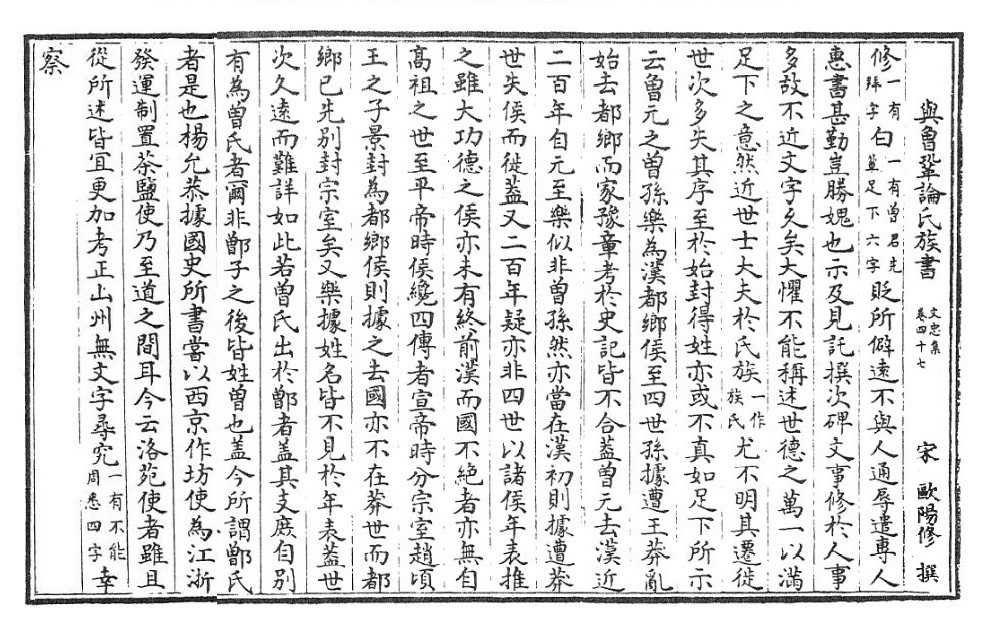 與曾鞏論氏族書 文忠集卷四十七 宋 歐陽修 撰
修一有拜字白一有曾君先輩足下六字貶所僻遠不與人通辱遣專人
惠書甚勤豈勝媿也示及見託撰次碑文事修於人事
多故不近文字久矣大懼不能稱述世德之萬一以滿
足下之意然近世士大夫於氏族一作族氏尤不明其遷徙
世次多失其序至於始封得姓亦或不真如足下所示
云曾元之曾孫樂為漢都鄉侯至四世孫據遭王莽亂
始去都鄉而家豫章考於史記皆不合蓋曾元去漢近
二百年自元至樂似非曾孫然亦當在漢初則據遭莽
世失侯而徙蓋又二百年疑亦非四世以諸侯年表推
之雖大功德之侯亦未有終前漢而國不絕者亦無自
高祖之世至平帝時侯纔四傳者宣帝時分宗室趙頃
王之子景封為都鄉侯則據之去國亦不在莽世而都
鄉已先別封宗室矣又樂據姓名皆不見於年表蓋世
次久遠而難詳如此若曾氏出於鄫者蓋其支庶自別
有為曾氏者爾非鄫子之後皆姓曾也蓋今所謂鄫氏
者是也楊允恭據國史所書嘗以西京作坊使為江浙
發運制置茶鹽使乃至道之間耳今云洛苑使者雖且
從所述皆宜更加考正山州無文字尋究一有不能周悉四字幸
察